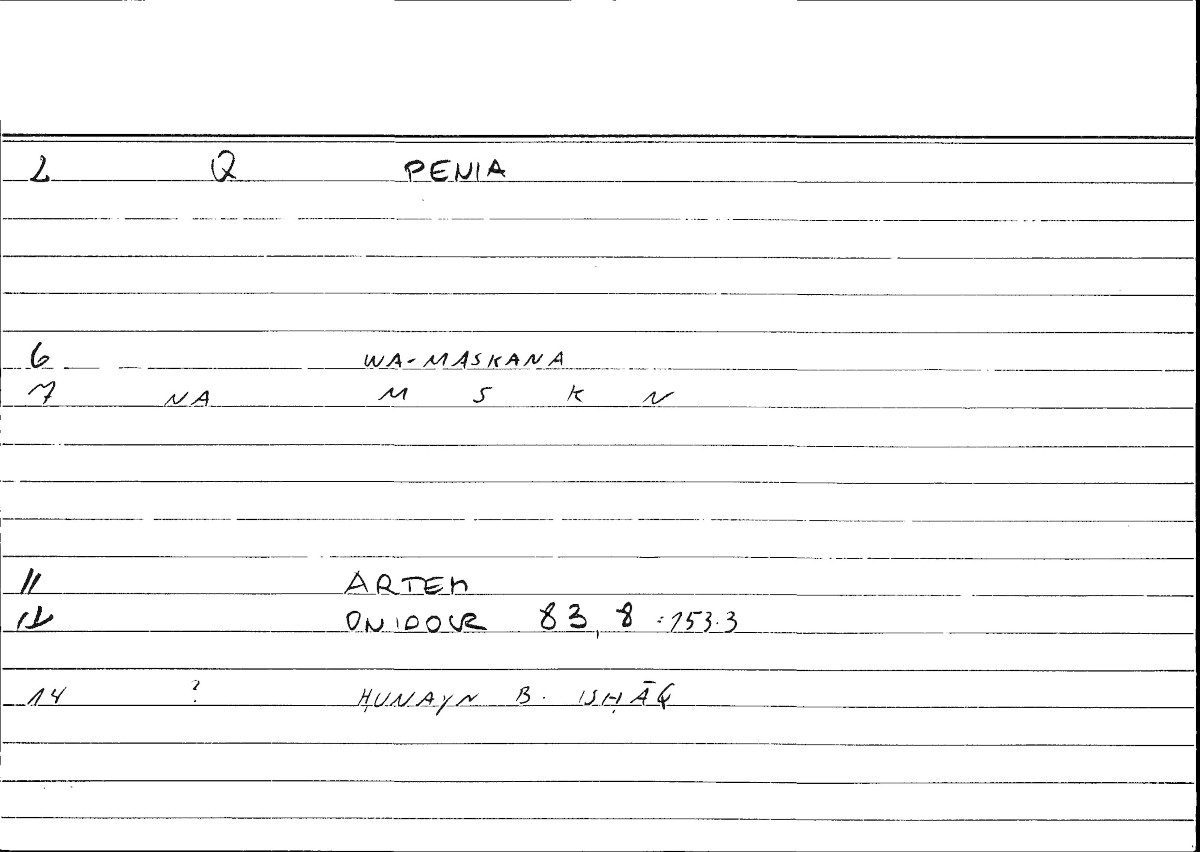 2 Q PENIA
6 WA-MASKANA
7 NA M S K N
11 ARTEM
12 ONIDOCR 83,8 :153.3
14 ? ḤUNAYN B. ISḤĀQ